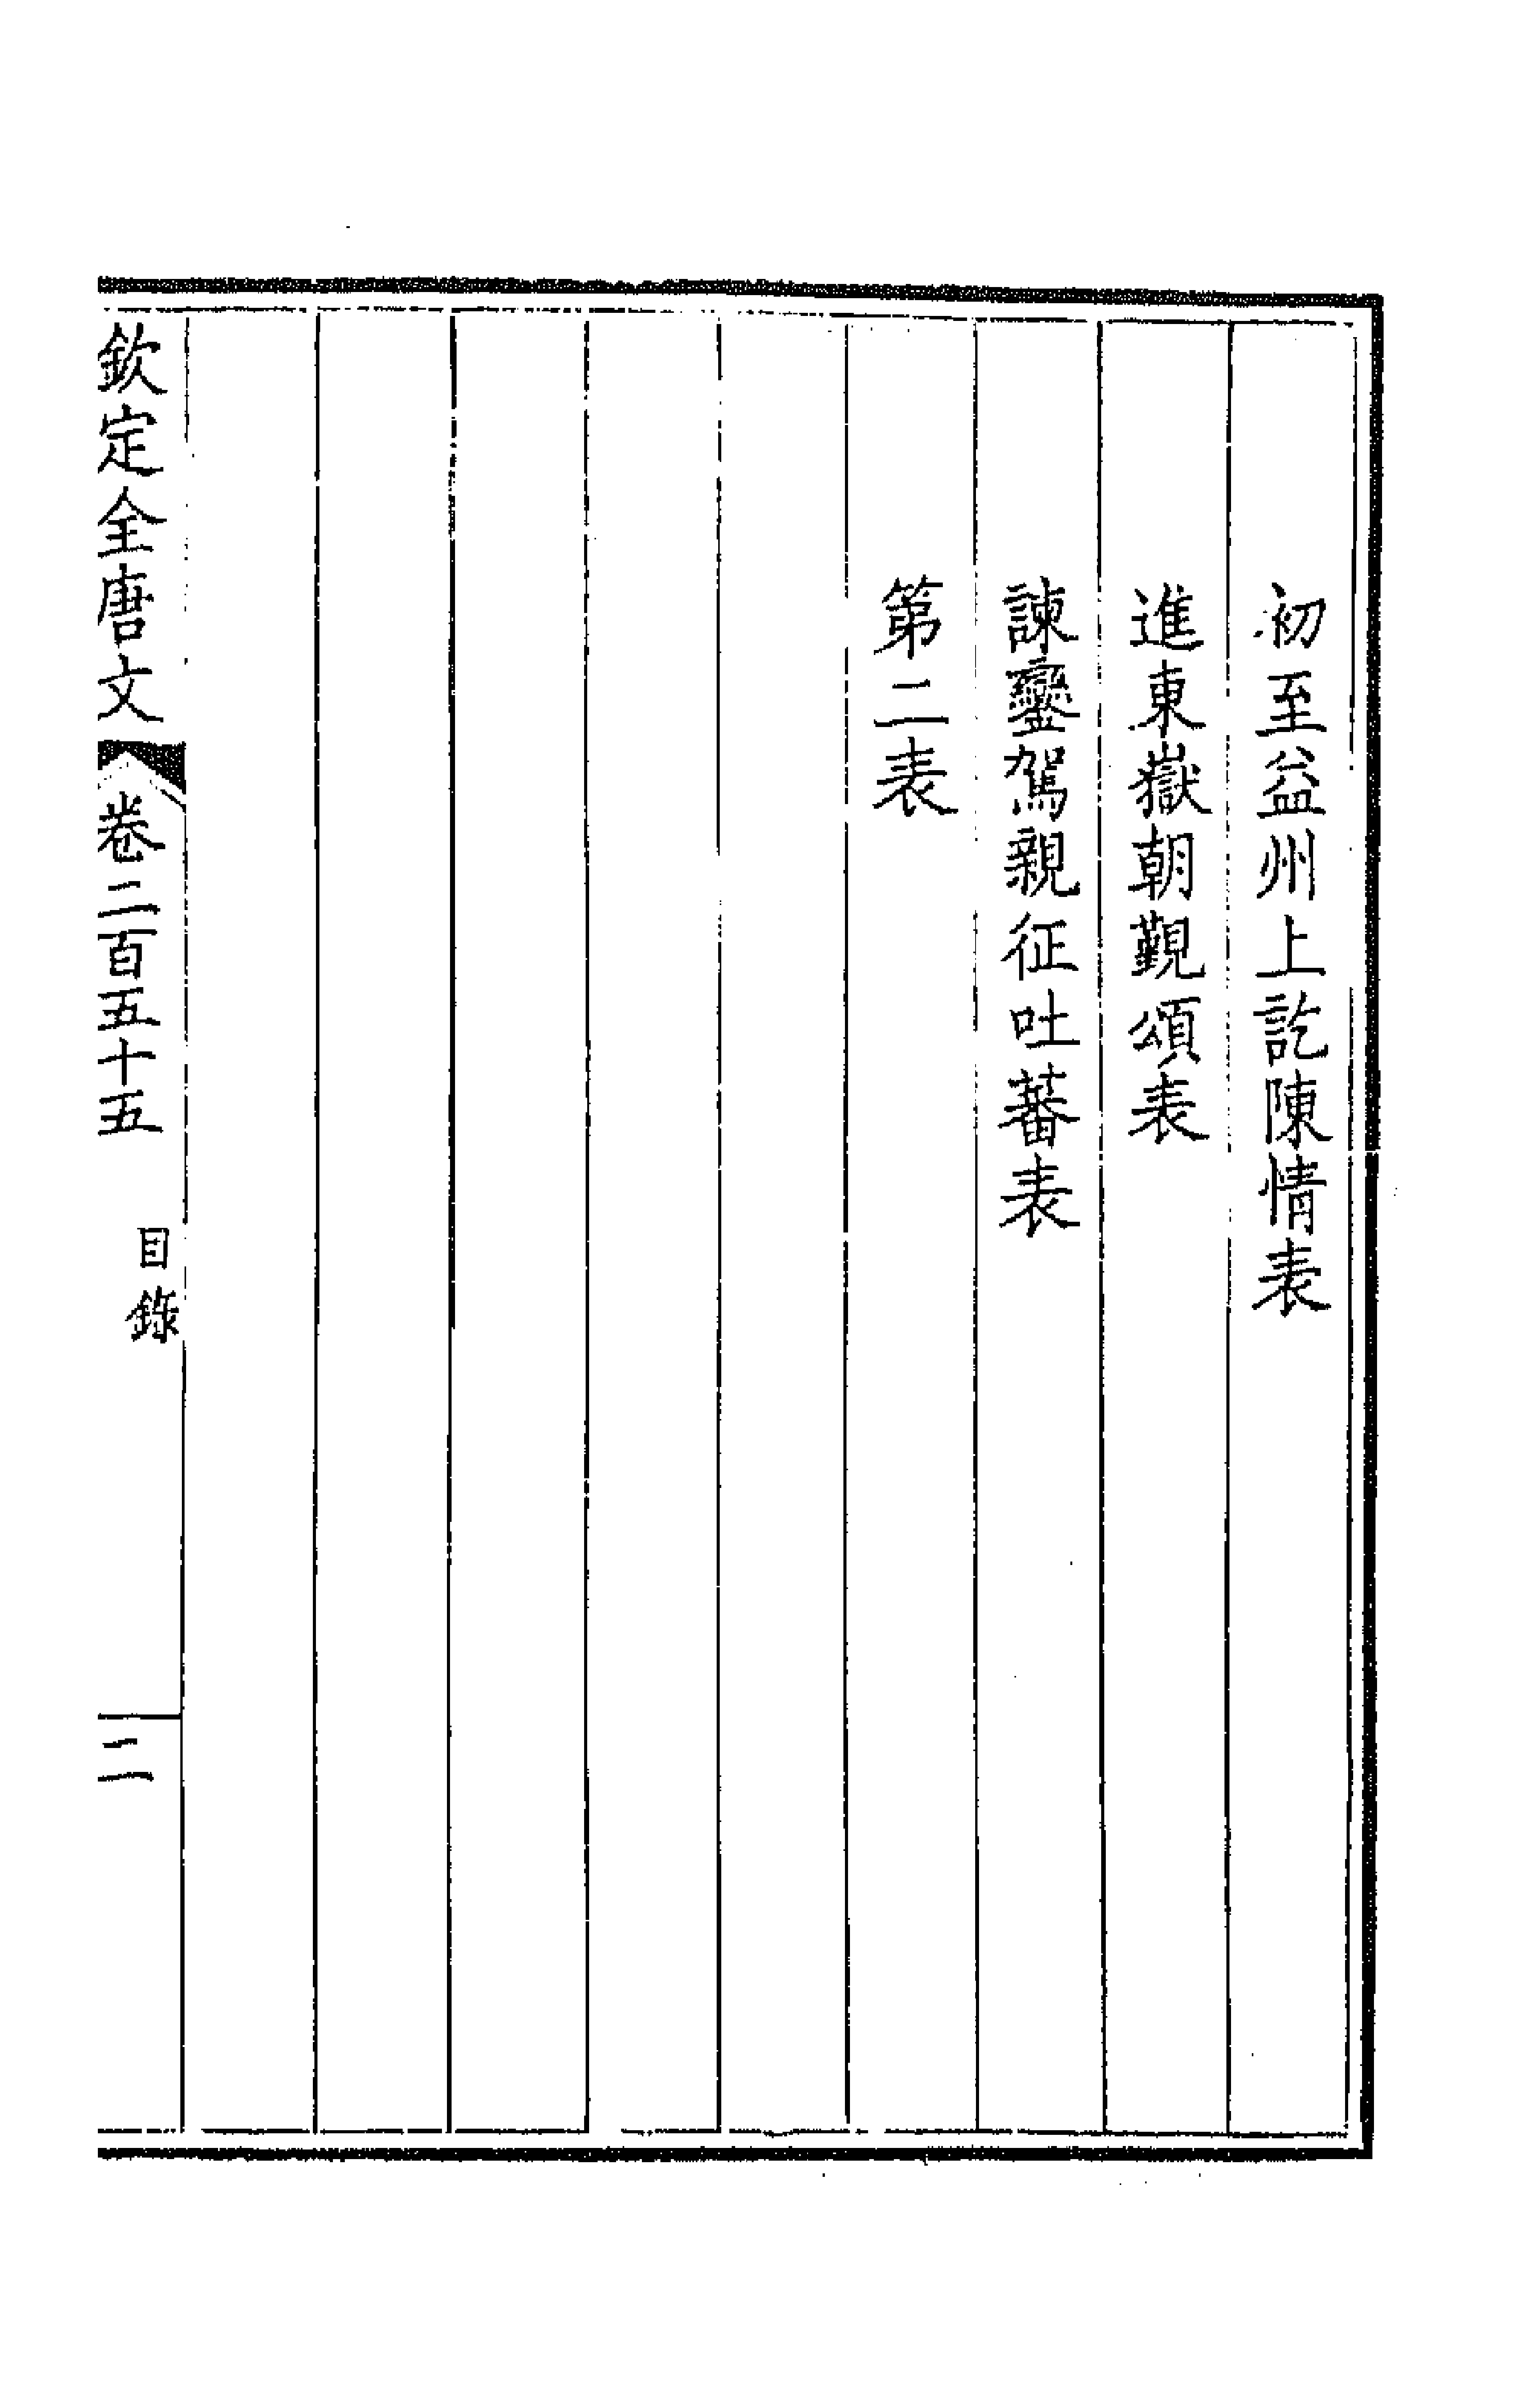 初至益州上訖陳情表
進東嶽朝覲頌表
諫鑾駕親征吐蕃表
第二表
欽定全唐文
卷二百五十五
目錄
二